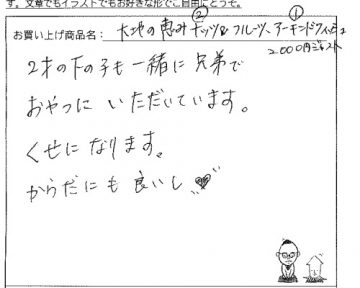 す。文章でもイラストでもお好きな形でご自由にどうぞ。
② ①
お買い上げ商品名： 大地の恵みナッツ&フルーツ、アーモンドフィッシュ
2000円ジャスト
2才の下の子も一緒に兄弟で
おやつに いただいています。
くせになります。
からだにも良いし